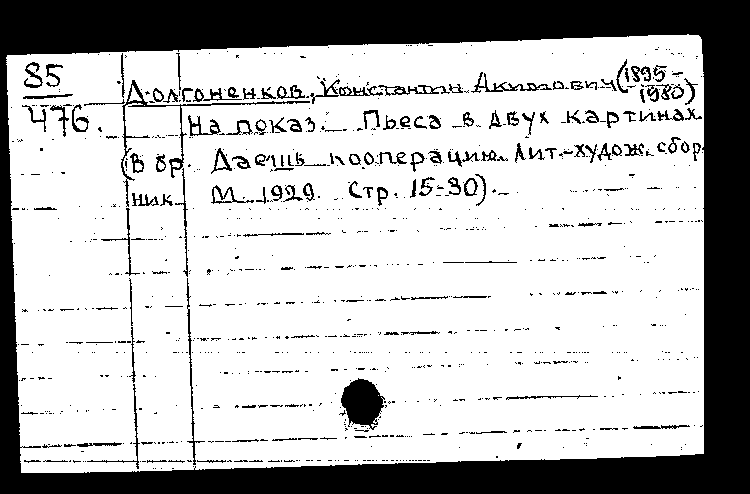 85
476.
Долгоненков, Константин Акимович (1895-1980)
На показ. Пьеса в двух картинах.
(В бр. Даешь кооперацию. Лит.-худож. сбор
ник М. 1929. Стр. 15-30).